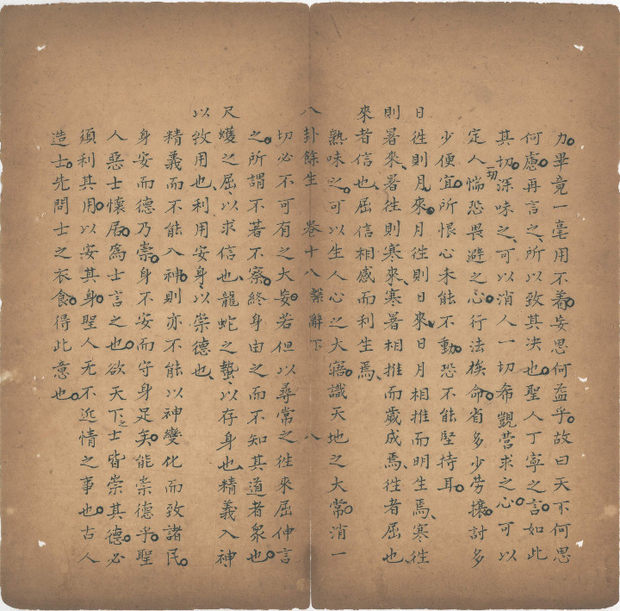 力畢竟一毫用不着妄思何益乎故曰天下何思
何慮再言之所以致其決也聖人丁寧之言如此
其切深味之可以消人一切希覬營求之心可以
定人惴恐畏避之心行法俟命省多少勞攘討多
少便宜所恨心未能不動恐不能堅持耳
日徃則月來月徃則日來日月相推而明生焉寒徃
則暑來暑徃則寒來寒暑相推而歲成焉徃者屈也
來者信也屈信相感而利生焉
熟味之可以生人心之大寤識天地之大常消一
八卦餘生 卷十八繫辭下 八
切必不可有之大妄若但以尋常之徃來屈伸言
之所謂不著不察終身由之而不知其道者衆也
尺蠖之屈以求信也龍蛇之蟄以存身也精義入神
以致用也利用安身以崇德也
精義而不能入神則亦不能以神變化而致諸民
身安而德乃崇身不安而守身足矣能崇德乎聖
人惡士懷居爲士言之也欲天下之士皆崇其德必
須利其用以安其身聖人无不近情之事也古人
造士先問士之衣食得此意也